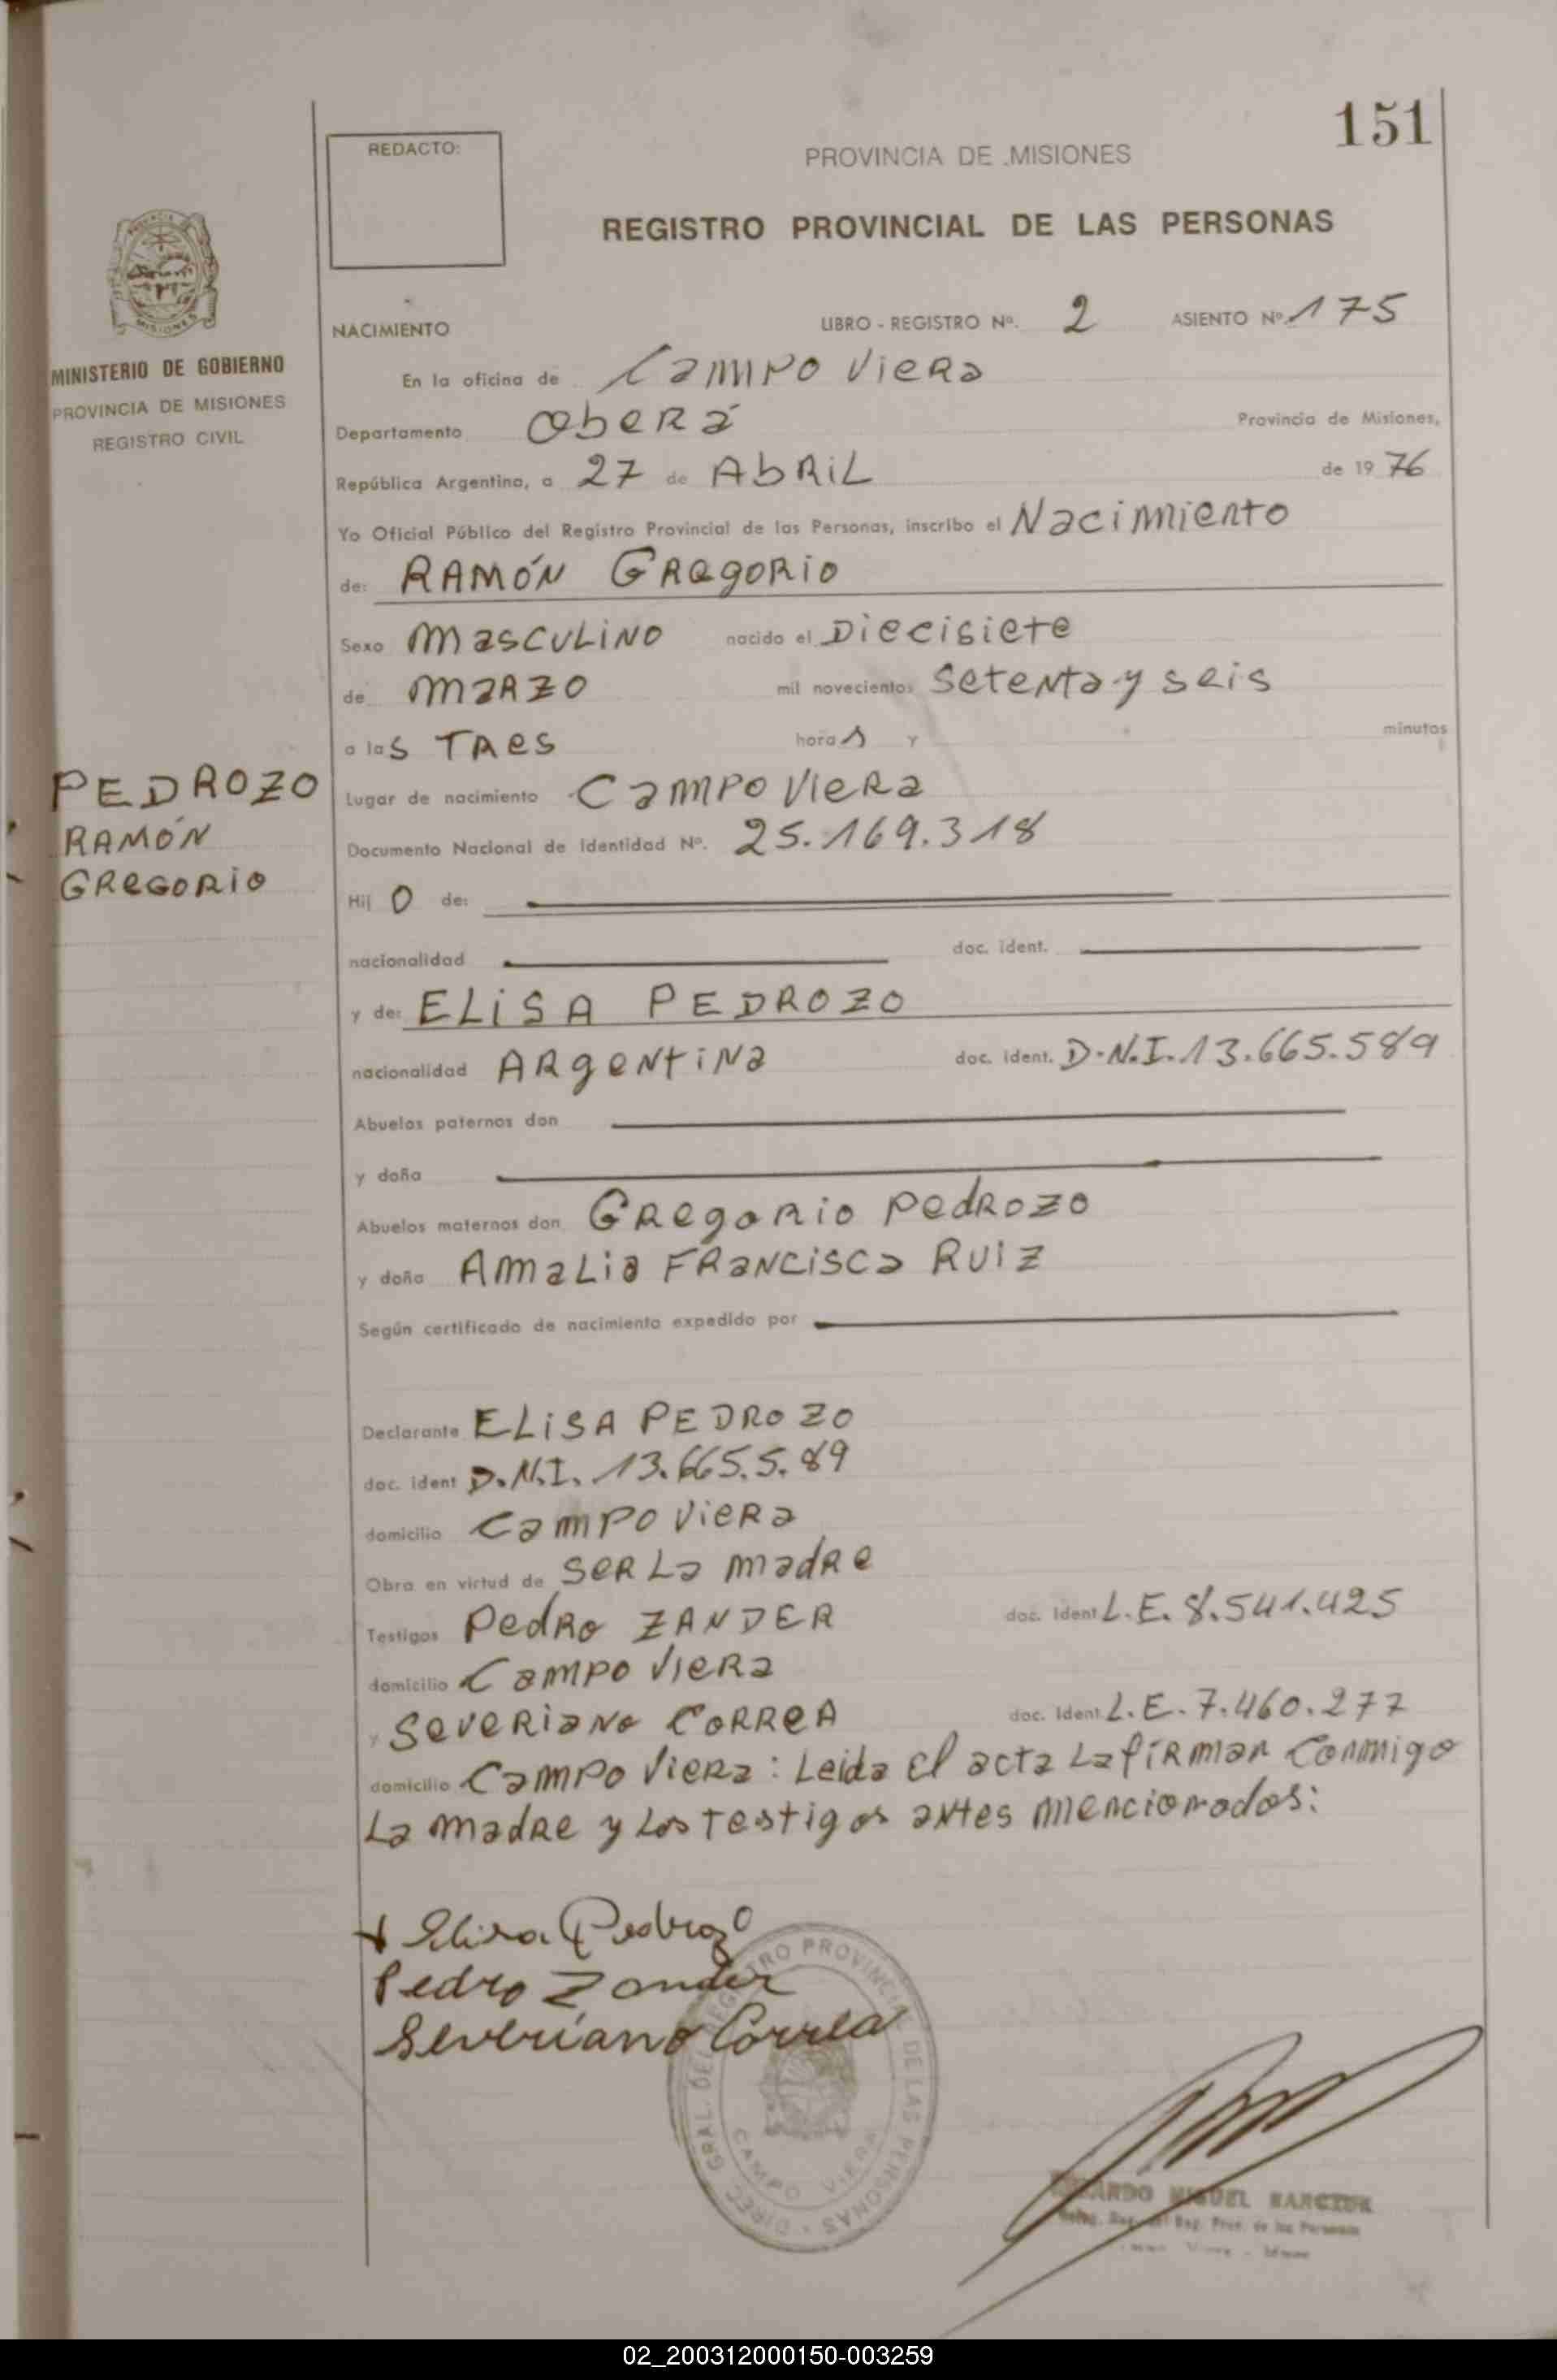 151
REDACTO:
PROVINCIA DE MISIONES
REGISTRO PROVINCIAL DE LAS PERSONAS
MISIONES
MINISTERIO DE GOBIERNO
PROVINCIA DE MISIONES
REGISTRO CIVIL
NACIMIENTO LIBRO - REGISTRO Nº. 2 ASIENTO Nº 175
En la oficina de Campo Viera
Departamento Oberá Provincia de Misiones,
República Argentina, a 27 de ABRIL de 1976
Yo Oficial Público del Registro Provincial de las Personas, inscribo el Nacimiento
de: RAMÓN GREGORIO
Sexo MASCULINO nacido el Diecisiete
de MARZO mil novecientos Setenta y seis
a las TRES horas y minutos
PEDROZO
RAMÓN
GREGORIO
Lugar de nacimiento Campo Viera
Documento Nacional de Identidad Nº. 25.169.318
Hijo de:
nacionalidad doc. ident.
y de: ELISA PEDROZO
nacionalidad ARgentina doc. ident. D.N.I. 13.665.589
Abuelos paternos don
y doña
Abuelos maternos don Gregorio Pedrozo
y doña Amalia Francisca Ruiz
Según certificado de nacimiento expedido por
Declarante ELISA PEDROZO
doc. ident D.N.I. 13.665.5.89
domicilio Campo Viera
Obra en virtud de ser la madre
Testigos Pedro ZANDER doc. Ident L.E. 8.541.425
domicilio Campo Viera
y Severiano Correa doc. Ident L.E. 7.460.277
domicilio Campo Viera: Leida el acta la firman conmigo
La madre y los testigos antes mencionados:
Elisa Pedrozo
Pedro Zander
Severiano Correa
DIREC. GRAL. DEL REGISTRO PROVINCIAL DE LAS PERSONAS
CAMPO VIERA
MIGUEL
Prov. de las Personas
02_200312000150-003259